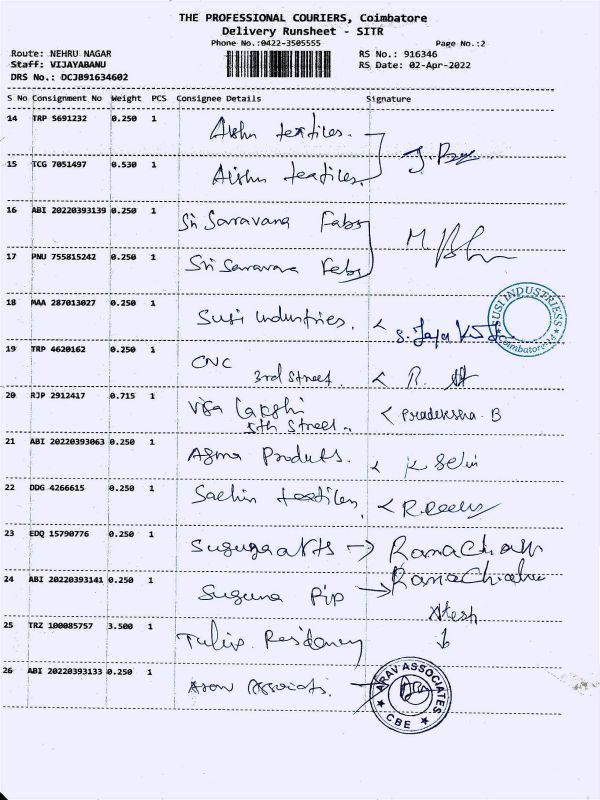 THE PROFESSIONAL COURIERS, Coimbatore
Delivery Runsheet - SITR
Phone No.:0422-3505555 Page No.:2
Route: NEHRU NAGAR RS No.: 916346
Staff: VIJAYABANU RS Date: 02-Apr-2022
DRS No.: DCJB91634602
S No Consignment No Weight PCS Consignee Details Signature
14 TRP 5691232 0.250 1 Aishu textiles.
15 TCG 7051497 0.530 1 Aishu textiles.
16 ABI 20220393139 0.250 1 Sri Saravana Fabs
17 PNU 755815242 0.250 1 Sri Saravana Febs
18 MAA 287013027 0.250 1 Susi industries.
SUSI INDUSTRIESS
Coimbatore-14
19 TRP 4620162 0.250 1 CNC
3rd Street.
20 RJP 2912417 0.715 1 Lakshi
5th Street. Pradeksha. B
21 ABI 20220393063 0.250 1 Agma Produts.
22 DDG 4266615 0.250 1 Sachin textiles
23 EDQ 15790776 0.250 1
24 ABI 20220393141 0.250 1 Suguna Pip
25 TRZ 100085757 3.500 1 Tulip Residency
26 ABI 20220393133 0.250 1
ARAV ASSOCIATES
CBE